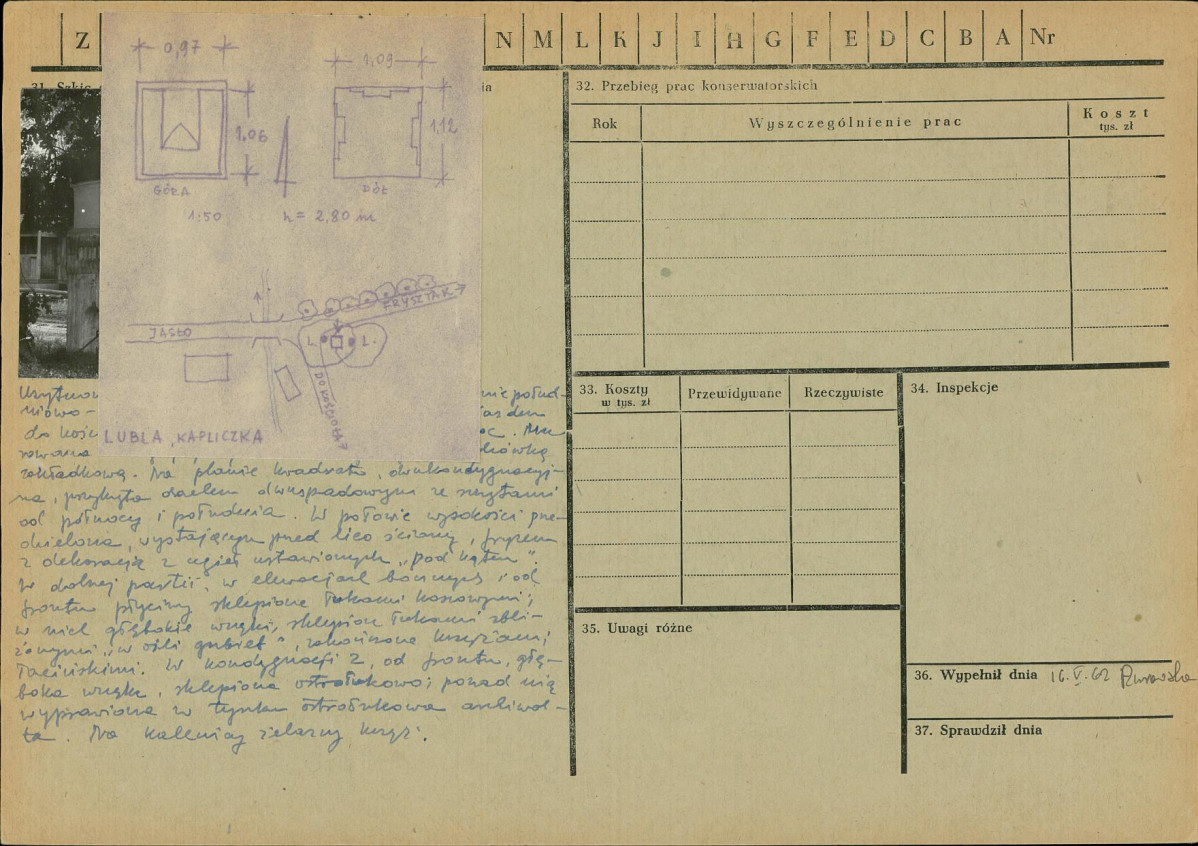 Z N M L K J I H G F E D C B A Nr
31. Szkic
32. Przebieg prac konserwatorskich
Rok Wyszczególnienie prac Koszt
tys. zł
33. Koszty
w tys. zł
Przewidywane
Rzeczywiste
34. Inspekcje
35. Uwagi różne
36. Wypełnił dnia 16.V.62
37. Sprawdził dnia
0,97
1,09
1,06
1,12
GÓRA
DÓŁ
1:50 h = 2,80 m
JASŁO
FRYSZTAK
L. L.
DO KOŚCIOŁA
LUBLA, KAPLICZKA
nie połud-
niowo-
do kość
rowana
zakładkową. Na planie kwadratu, dwukondygnacyj-
na, przykryta dachem dwuspadowym ze szczytami
od północy i południa. W połowie wysokości prze-
dzielona, wystającym przed lico ściany, fryzem
z dekoracją z cegieł ustawionych „pod kątem".
W dolnej partii, w elewacjach bocznych i od
frontu płyciny sklepione łukami koszowymi;
w nich głębokie wnęki, sklepione łukami zbli-
żonymi „w ośli grzbiet", zakończone krzyżami
łacińskimi. W kondygnacji 2, od frontu, głę-
boka wnęka, sklepiona ostrołukowo; ponad nią
wyprawiona w tynku ostrołukowa archiwol-
ta. Na kalenicy żelazny krzyż.